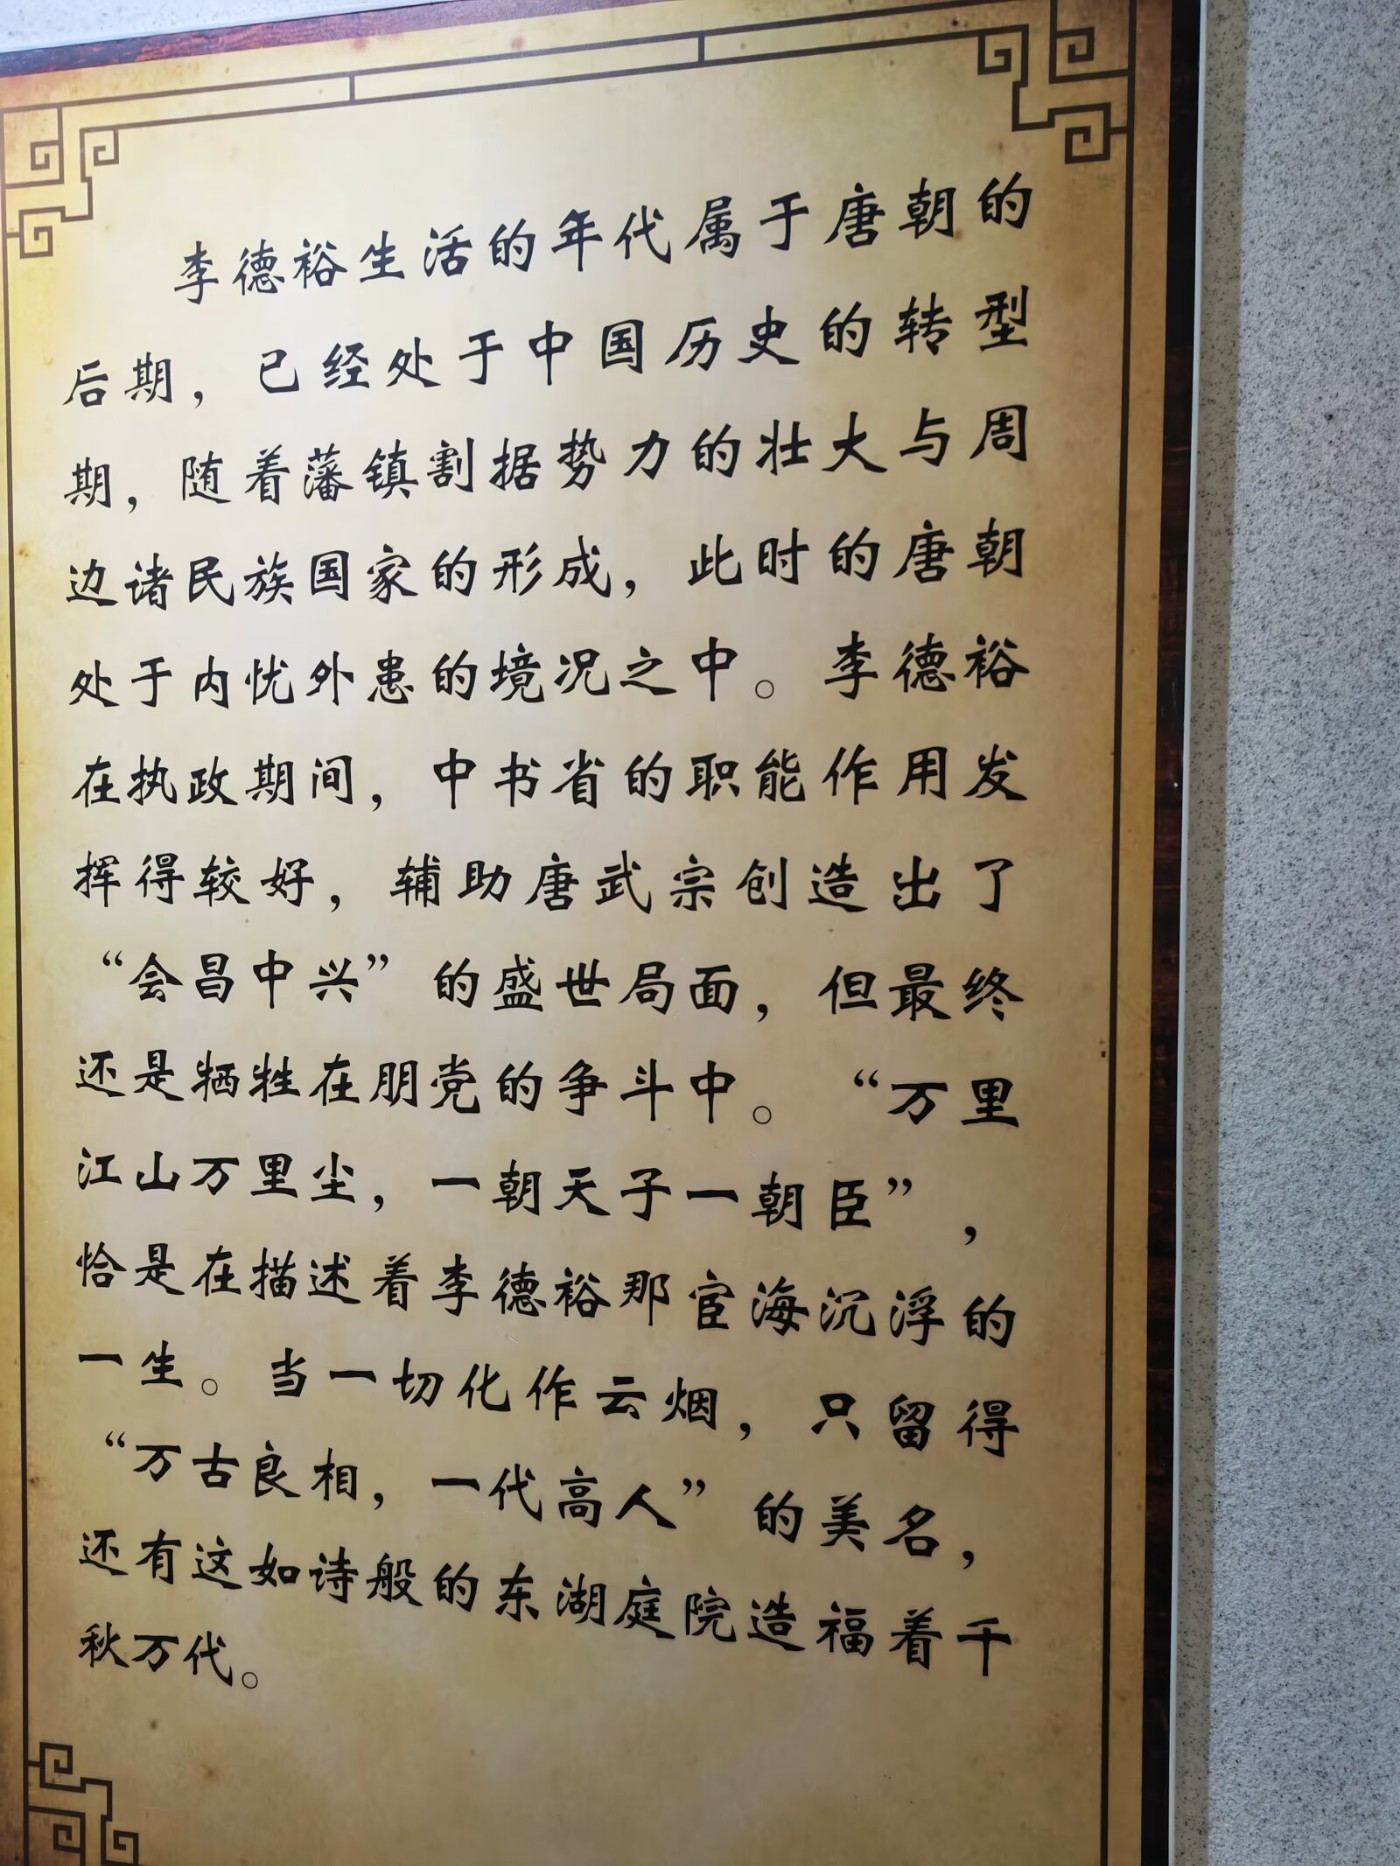 李德裕生活的年代属于唐朝的
后期，已经处于中国历史的转型
期，随着藩镇割据势力的壮大与周
边诸民族国家的形成，此时的唐朝
处于内忧外患的境况之中。李德裕
在执政期间，中书省的职能作用发
挥得较好，辅助唐武宗创造出了
“会昌中兴”的盛世局面，但最终
还是牺牲在朋党的争斗中。“万里
江山万里尘，一朝天子一朝臣”，
恰是在描述着李德裕那宦海沉浮的
一生。当一切化作云烟，只留得
“万古良相，一代高人”的美名，
还有这如诗般的东湖庭院造福着千
秋万代。